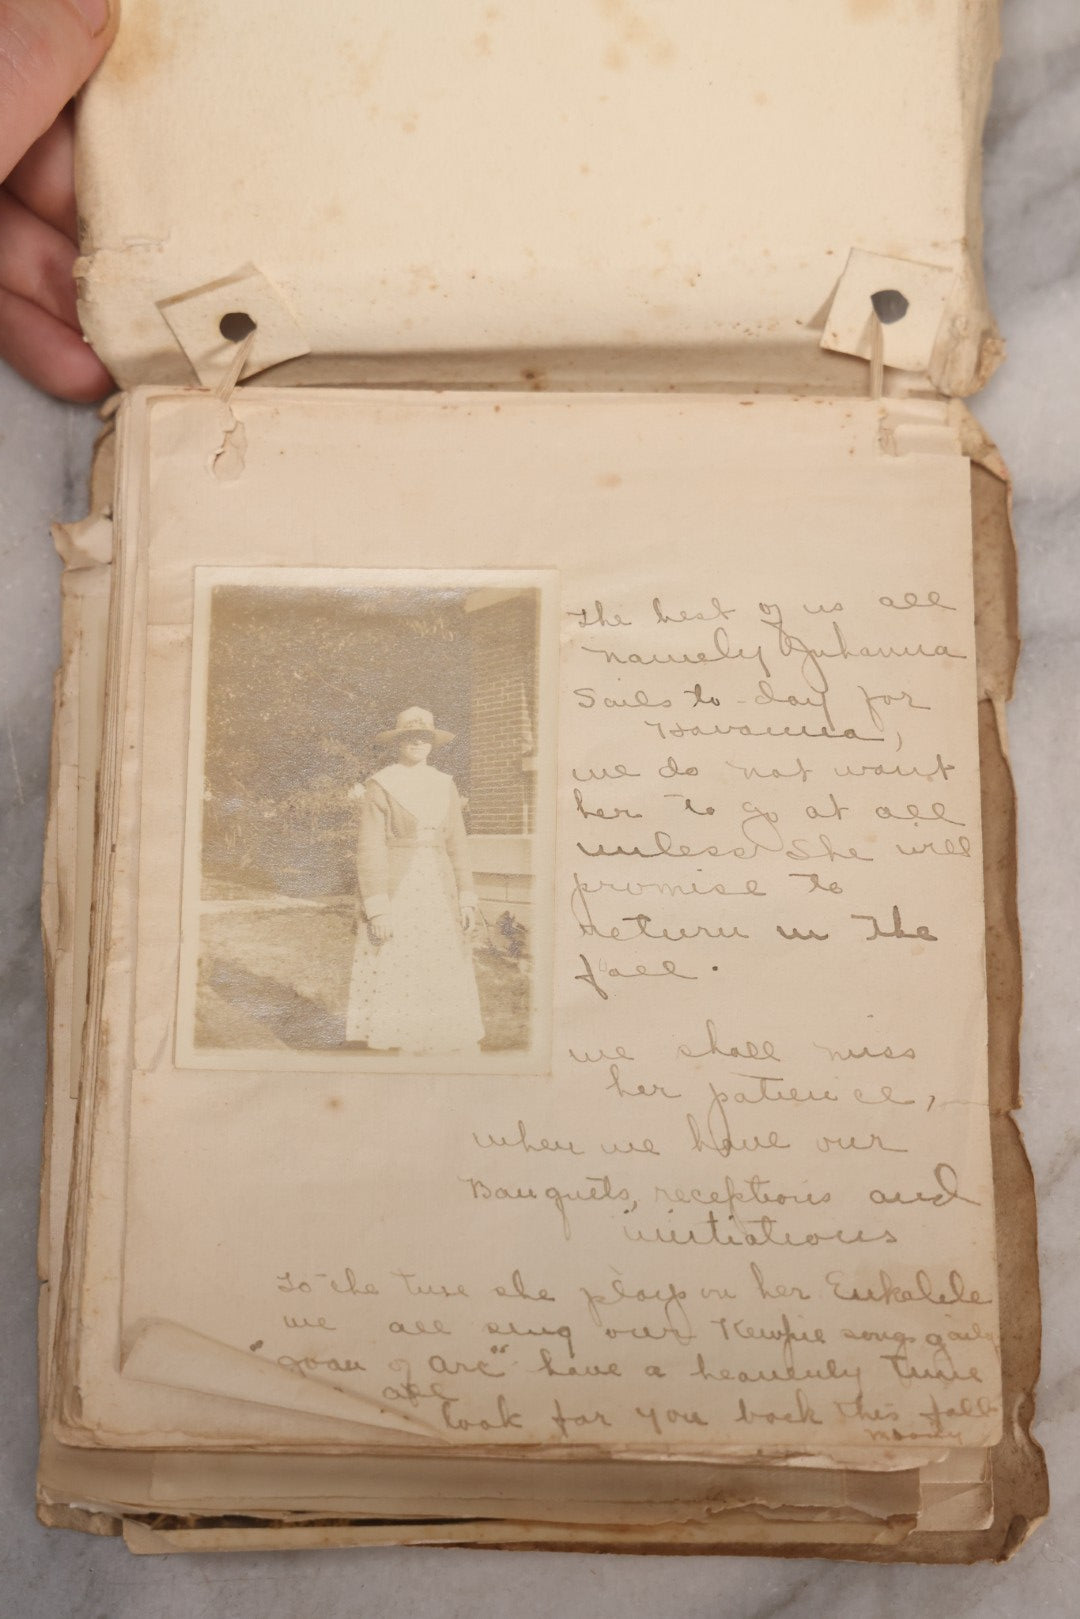 The best of us all
namely Juhanna
Sails to-day for
Havanna,
we do not want
her to go at all
unless She will
promise to
return in The
fall.
we shall miss
her patience,
when we have our
Banquets, receptions and
initiations
To the tune she plays on her Eukalele
we all sing our Kewpie song gaily
"Joan of Arc" have a heavenly time
all
look for you back this fall